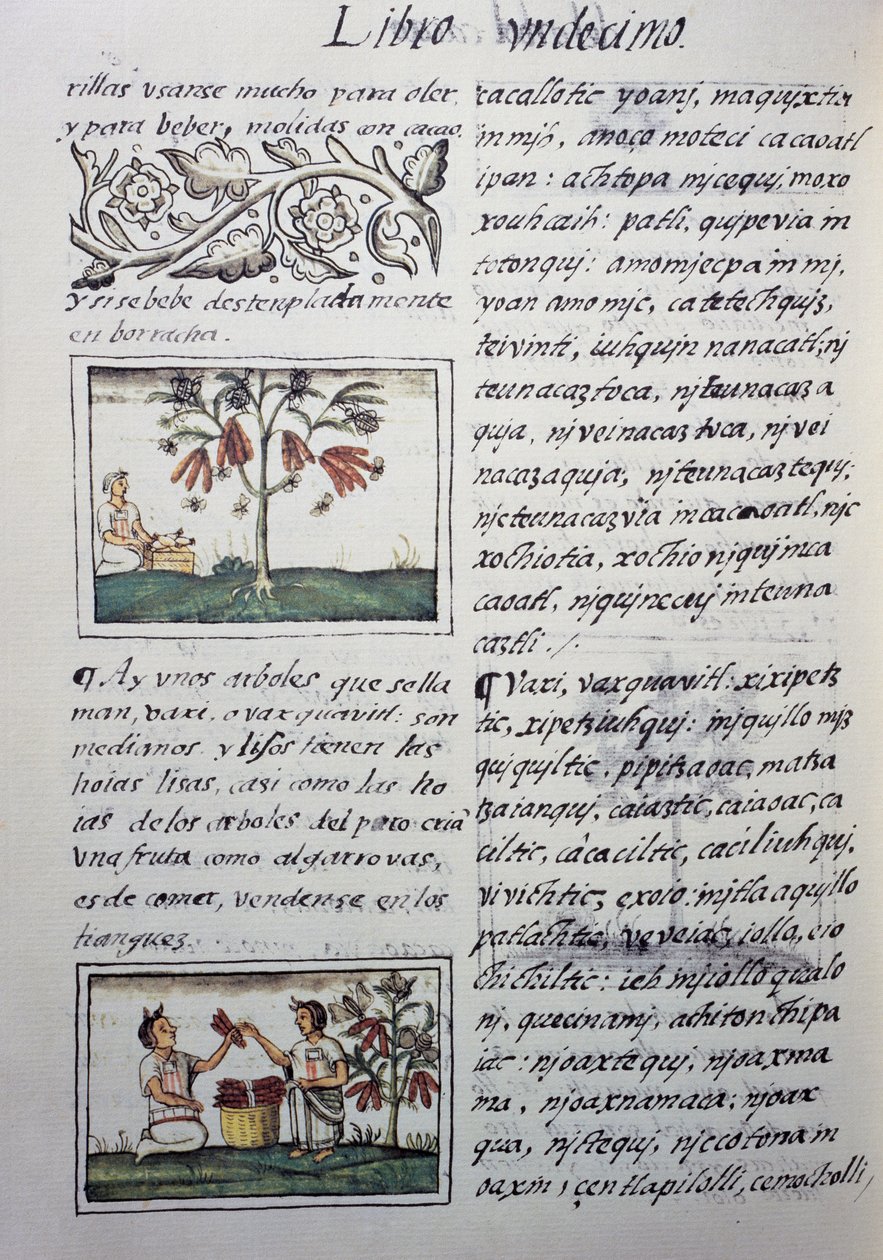 Libro vndecimo.
rillas vsanse mucho para oler,
y para beber, molidas con cacao.
y si se bebe destenpladamente
en borracha.
¶ Ay vnos arboles que se lla
man, vaxi, o vaxquavitl: son
medianos y lisos tienen las
hoias lisas, casi como las ho
ias de los arboles del pero criā
vna fruta como algarrovas,
es de comer, vendense en los
tianguez
cacallotic yoanj, maqujxtia
in mjh, anoço moteci cacaoatl
ipan: achtopa mjcequj, moxo
xouhcaih: patli, qujpevia in
totonquj: amo mjecpa in mj,
yoan amo mjc, ca tetechqujz,
teivinti, iuhqujn nanacatl; nj
teunacaztoca, njteunacaza
quja, njveinacaztoca, njvei
nacazaquja, njteunacaztequj;
njcteunacazvia in cacaoatl, njc
xochiotia, xochio njqujn in ca
caoatl, njqujnecuj in teuna
caztli ./.
¶ Vaxi, vaxquavitl: xixipetz
tic, xipetziuhquj: in jqujllo mjz
qujqujltic, pipitzaoac, matza
tzaianquj, caiaztic, caiaoac, ca
ciltic, cācaciltic, caciliuhquj,
vivichtic, exoio: in jtlaaqujllo
patlachtic, veveiac, iollo, eio
chichiltic: ieh in jiollo qualo
nj, quecinamj, achiton chipa
iac: njoaxtequj, njoaxma
ma, njoaxnamaca; njoax
qua, njctequj, njccotona in
oaxin, çentlapilolli, cemocholli,